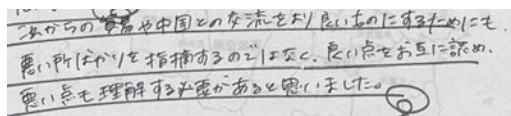 これからの貿易や中国との交流をより良いものにするためにも、
悪い所ばかりを指摘するのではなく、良い点をお互に認め、
悪い点も理解する必要があると思いました。